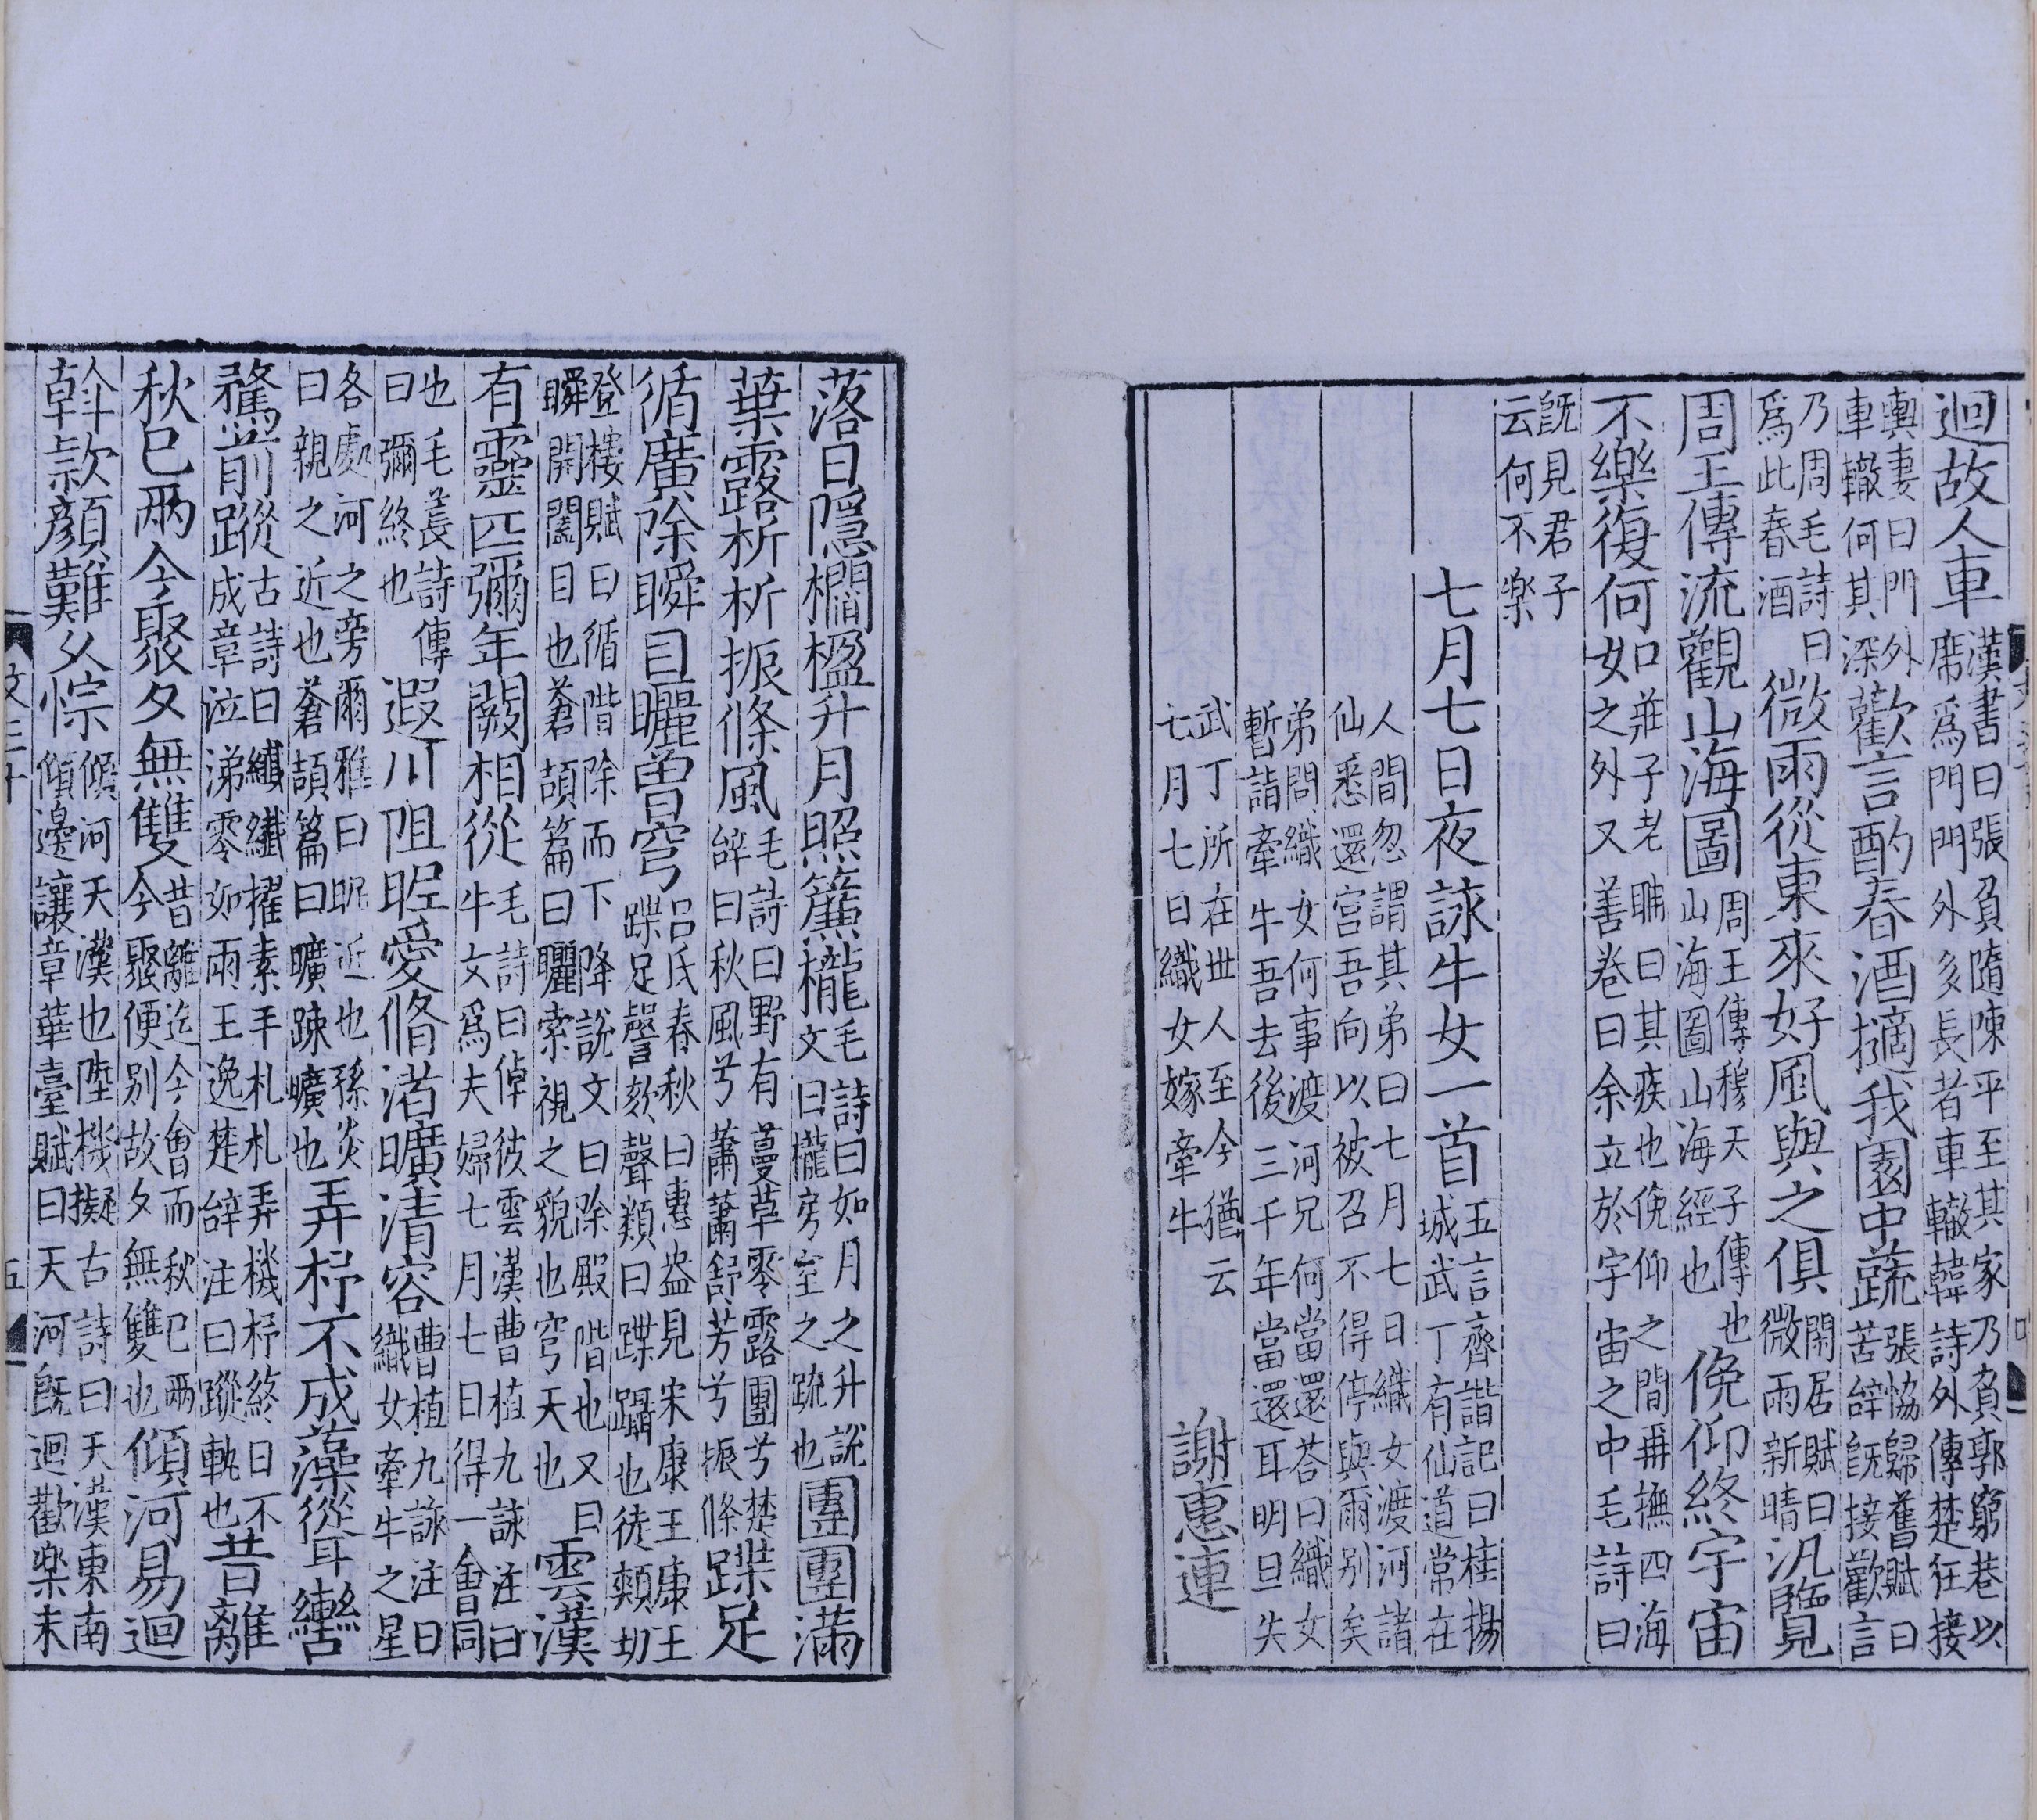 迴故人車漢書曰張負隨陳平至其家乃負郭窮巷以席爲門門外多長者車轍韓詩外傳楚狂接
輿妻曰門外車轍何其深歡言酌春酒摘我園中蔬張協歸舊賦曰苦辞旣接歡言
乃周毛詩曰爲此春酒微雨從東來好風與之俱閑居賦曰微雨新晴汎覽
周王傳流觀山海圖周王傳穆天子傳也山海圖山海經也俛仰終宇宙
不樂復何如莊子老聃曰其疾也俛仰之間再撫四海女之外又善卷曰余立於宇宙之中毛詩曰
旣見君子云何不樂
七月七日夜詠牛女一首五言齊諧記曰桂揚城武丁有仙道常在
人間忽謂其弟曰七月七日織女渡河諸仙悉還宫吾向以被召不得停與爾别矣
弟問織女何事渡河兄何當還荅曰織女暫詣牽牛吾去後三千年當還耳明旦失
武丁所在世人至今猶云七月七日織女嫁牽牛 謝惠連
落日隱櫩楹升月照簾櫳毛詩曰如月之升說文曰櫳房室之疏也團團滿
葉露析析振條風毛詩曰野有蔓草零露團兮楚辞曰秋風兮蕭蕭舒芳兮振條蹀足
循廣除瞬目曬曽穹吕氏春秋曰惠盎見宋康王康王蹀足謦欬聲類曰蹀躡也徒頰切
登樓賦曰循階除而下降說文曰除殿階也又曰瞬開闔目也蒼頡篇曰曬索視之貌也穹天也雲漢
有靈匹彌年闕相從毛詩曰倬彼雲漢曹植九詠注曰牛女爲夫婦七月七日得一會同
也毛萇詩傳曰彌終也遐川阻昵愛脩渚曠清容曹植九詠注曰織女牽牛之星
各處河之旁爾雅曰昵近也孫炎曰親之近也蒼頡篇曰曠踈曠也弄杼不成藻聳轡
騖前蹤古詩曰纖纖擢素手札札弄機杼終日不成章泣涕零如雨王逸楚辞注曰蹤軌也昔離
秋巳兩今聚夕無雙昔離迄今會而秋巳兩今聚便别故夕無雙也傾河易迴
斡款顏難久悰傾河天漢也陸機擬古詩曰天漢東南傾邊讓章華臺賦曰天河旣迴歡樂未
文三十
五